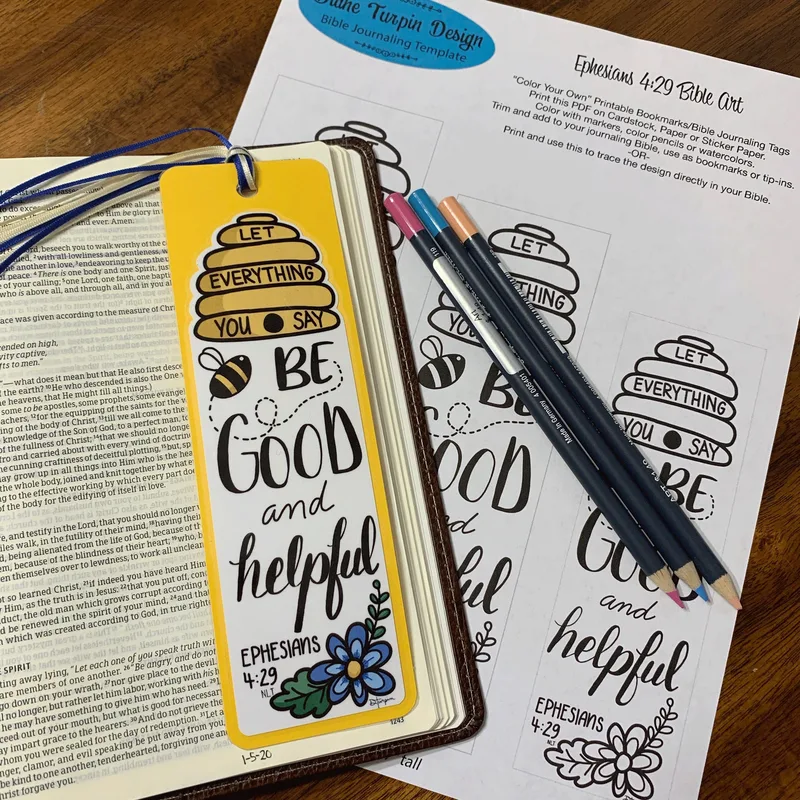 Diane Turpin Design
Bible Journaling Template
Ephesians 4:29 Bible Art
"Color Your Own" Printable Bookmarks/Bible Journaling Tags
Print this PDF on Cardstock, Paper or Sticker Paper.
Color with markers, color pencils or watercolors.
Trim and add to your journaling Bible, use as bookmarks or tip-ins.
-OR-
Print and use this to trace the design directly in your Bible.
LET
EVERYTHING
YOU SAY
BE
GOOD
and
helpful
EPHESIANS
4:29
NLT
LET
THING
YOU
BE
OOD
nd
ful
LET
EVERYTHING
YOU SAY
BE
GOOD
and
helpful
EPHESIANS
4:29
NLT
tall
Made in Germany
beseech you to walk worthy of the
with all lowliness and gentleness,
in love, endeavoring to keep the
of peace. There is one body and one Spirit, just
of your calling; one Lord, one faith, one
who is above all, and through all, and in you all.
was given according to the measure of Christ
ended on high,
vity captive,
ts to men."
—what does it mean but that He also first
He who descended is also the One
heavens, that He might fill all things.)
to be apostles, some prophets, some
for the equipping of the saints for the
of the body of Christ, till we all come to the
knowledge of the Son of God, to a perfect man,
of the fullness of Christ; that we should no longer
and carried about with every wind of doctrine,
cunning craftiness of deceitful plotting, but,
may grow up in all things into Him who is the
whole body, joined and knit together by what
to the effective working by which every part
of the body for the edifying of itself in love.
and testify in the Lord, that you should no longer
walk, in the futility of their mind, having
being alienated from the life of God, because of
because of the blindness of their heart; who,
themselves over to lewdness, to work all
so learned Christ, if indeed you have heard
Him, as the truth is in Jesus: that you put off,
duct, the old man which grows corrupt according
be renewed in the spirit of your mind, and that
which was created according to God, in true
SPIRIT
putting away lying, "Let each one of you speak truth
are members of one another. "Be angry, and do
go down on your wrath, nor give place to the devil.
longer, but rather let him labor, working with his
may have something to give him who has need.
out of your mouth, but what is good for necessary
impart grace to the hearers. And do not grieve the
whom you were sealed for the day of redemption. Let
anger, clamor, and evil speaking be put away from
be kind to one another, tenderhearted, forgiving one
Christ forgave you.
1243
1-5-20